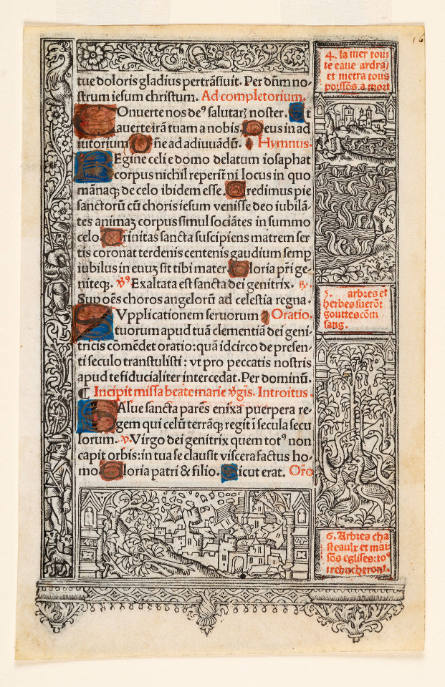 tue doloris gladius pertrãsiuit. Per dñm no-
strum iesum christum. Ad completorium.
Onuerte nos de⁹ salutarꝫ noster. Et
auerte irã tuam a nobis. Deus in ad
iutorium Dñe ad adiuuãdũ. Hymnus.
Regine celi e domo delatum iosaphat
corpus nichil reperit̃ ni locus in quo
mãnaqꝫ de celo ibidem esse. Credimus pie
sanctorũ cũ choris iesum venisse deo iubilã-
tes animaꝫ corpus simul sociãtes in summo
celo. Trinitas sancta suscipiens matrem ser
tis coronat terdenis centenis gaudium semp
iubilus in euuꝫ sit tibi mater. Gloria p̃ri ge-
niteqꝫ. ℣⁹ Exaltata est sancta dei genitrix. ℞.
Sup oẽs choros angelorũ ad celestia regna.
Supplicationem seruorum Oratio.
tuorum apud tuã clementiã dei geni
tricis cõmẽdet oratio: quã idcirco de presen
ti seculo transtulisti: vt pro peccatis nostris
apud te fiducialiter intercedat. Per dominũ.
¶ Incipit missa beate marie v̾gis. Introitus.
SAlue sancta parẽs enixa puerpera re
gem qui celũ terrãqꝫ regit ĩ secula secu
lorum. ℣. Virgo dei genitrix quem tot⁹ non
capit orbis: in tua se clausit viscera factus ho-
mo Gloria patri & filio. Sicut erat. Oro
4. la mer tou
te eaue ardra/
et metra tous
poissõs a mort
5. arbres et
herbes suerõt
gouttes cõm
sang.
6. Arbres cha
steaulx et mai
sõs eglises: to⁹
trebucheront.